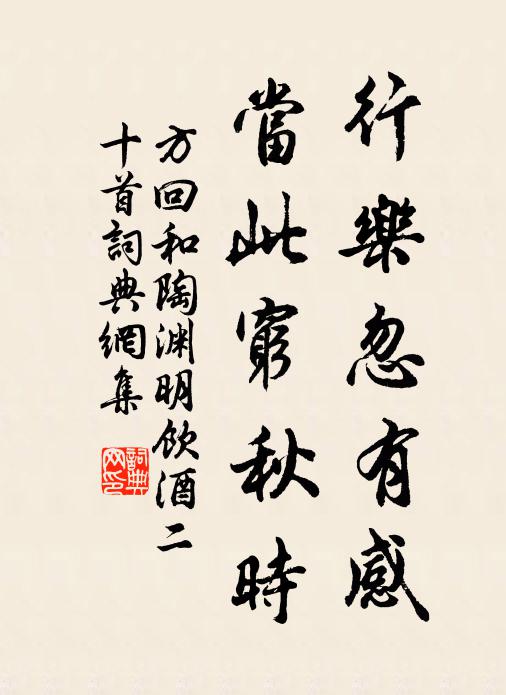 行樂忽有感
當此窮秋時
方回和陶淵明飲酒二
十首詞典網集
詞典
网印